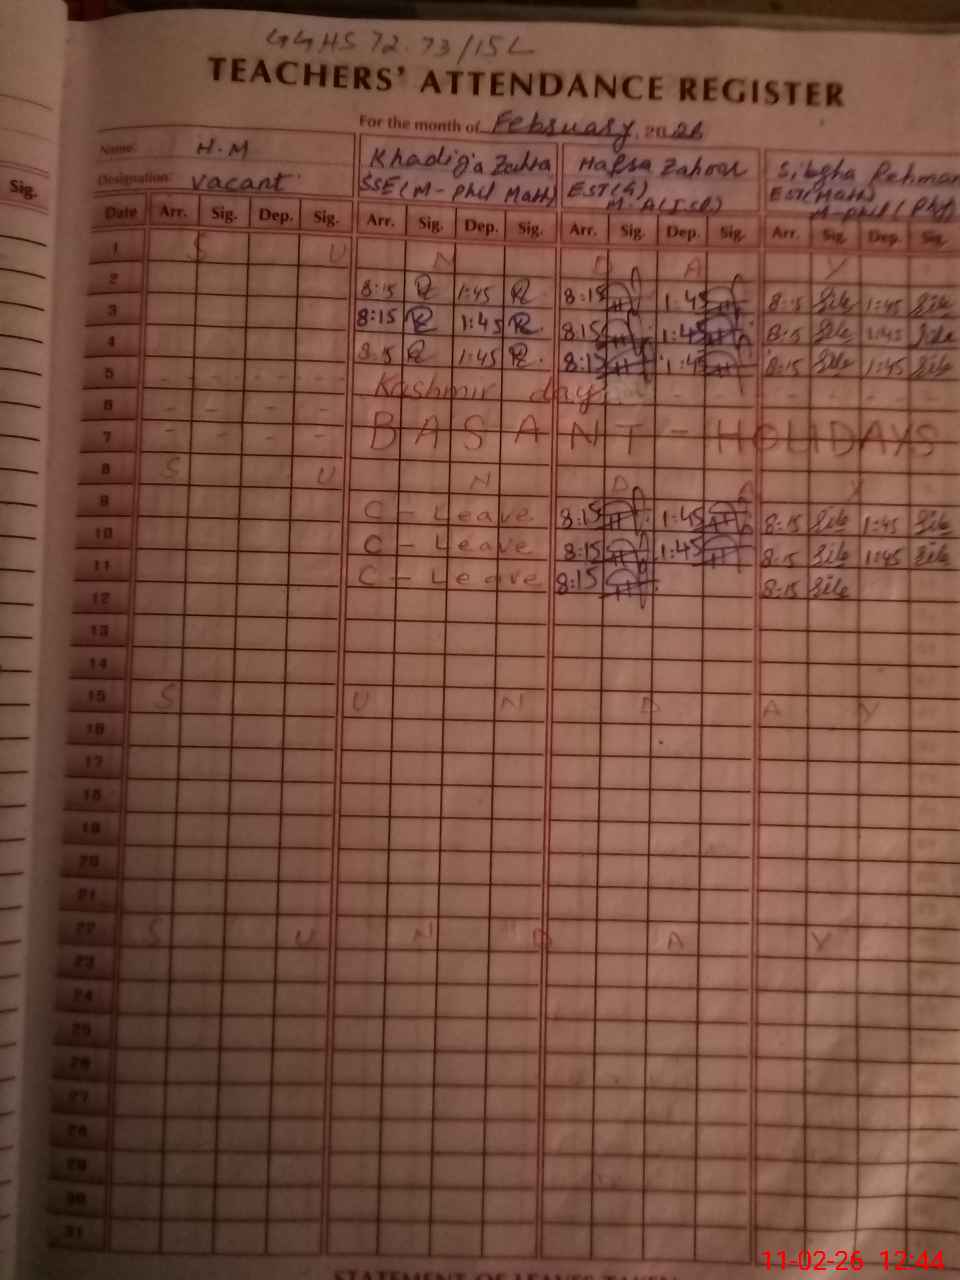 GGHS 72.73/15L
TEACHERS' ATTENDANCE REGISTER
For the month of February, 2026
Sig.
Name: H.M Khadija Zahra Hafsa Zahoor Sibgha Rehman
Designation: Vacant SSE(M-Phil Math) EST(G) EST(Math)
M-Phil (Phy)
Date Arr. Sig. Dep. Sig. Arr. Sig. Dep. Sig. Arr. Sig. Dep. Sig. Arr. Sig. Dep. Sig.
1 S U N D A Y
2 8:15 1:45 8:15 1:45 8:15 1:45
3 8:15 1:45 8:15 1:45 8:15 1:45
4 8:15 1:45 8:15 1:45 8:15 1:45
5 - - - - - - Kashmir day - - - - -
6 - - - -
7 - - - - BASANT - HOLIDAYS
8 S U N D A Y
9 C - Leave 8:15 1:45 8:15 1:45
10 C - Leave 8:15 1:45 8:15 1:45
11 C - Leave 8:15 8:15
12
13
14
15 S U N D A Y
16
17
18
19
20
21
22 S U N D A Y
23
24
25
26
27
28
29
30
31
STATEMENT OF LEAVES TAKEN
11-02-26 12:44